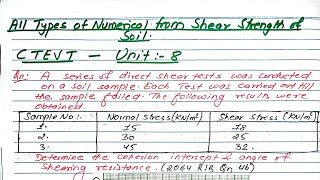 All Types of Numerical from Shear Strength of
Soil.
CTEVT - Unit:- 8
Qn: A series of direct shear tests was conducted
on a soil sample. Each Test was carried out till
the sample failed. The following results were
obtained.
Sample No:- Normal Stress (KN/m²) Shear Stress (KN/m²)
1. 15 18
2. 30 25
3. 45 32
Determine the cohesion intercept & angle of
shearing resistance. (2064 R/B, Qn 4b)